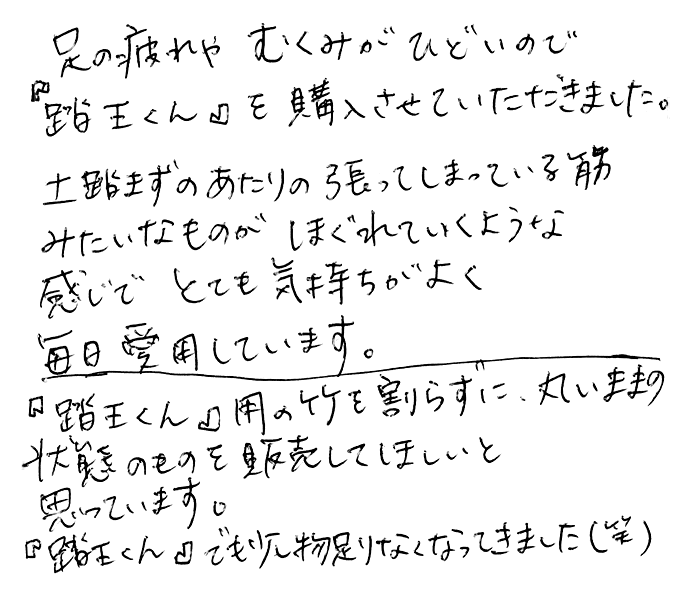 足の疲れや むくみが ひどいので
『踏王くん』を購入させていただきました。
土踏まずのあたりの張ってしまっている筋
みたいなものが ほぐれていくような
感じで とても気持ちがよく
毎日愛用しています。
『踏王くん』用の竹を割らずに、丸いままの
状態のものを販売してほしいと
思っています。
『踏王くん』でも少し物足りなくなってきました(笑)